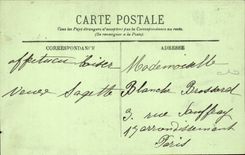 CARTE POSTALE
Tous les Pays étrangers n'acceptent pas la Correspondance au recto.
(Se renseigner à la Poste)
CORRESPONDANCE
ADRESSE
affectueux baiser
veuve Sagette
Mademoiselle
Blanche Brossard
3. rue Jouffroy
17 arrondissement
Paris